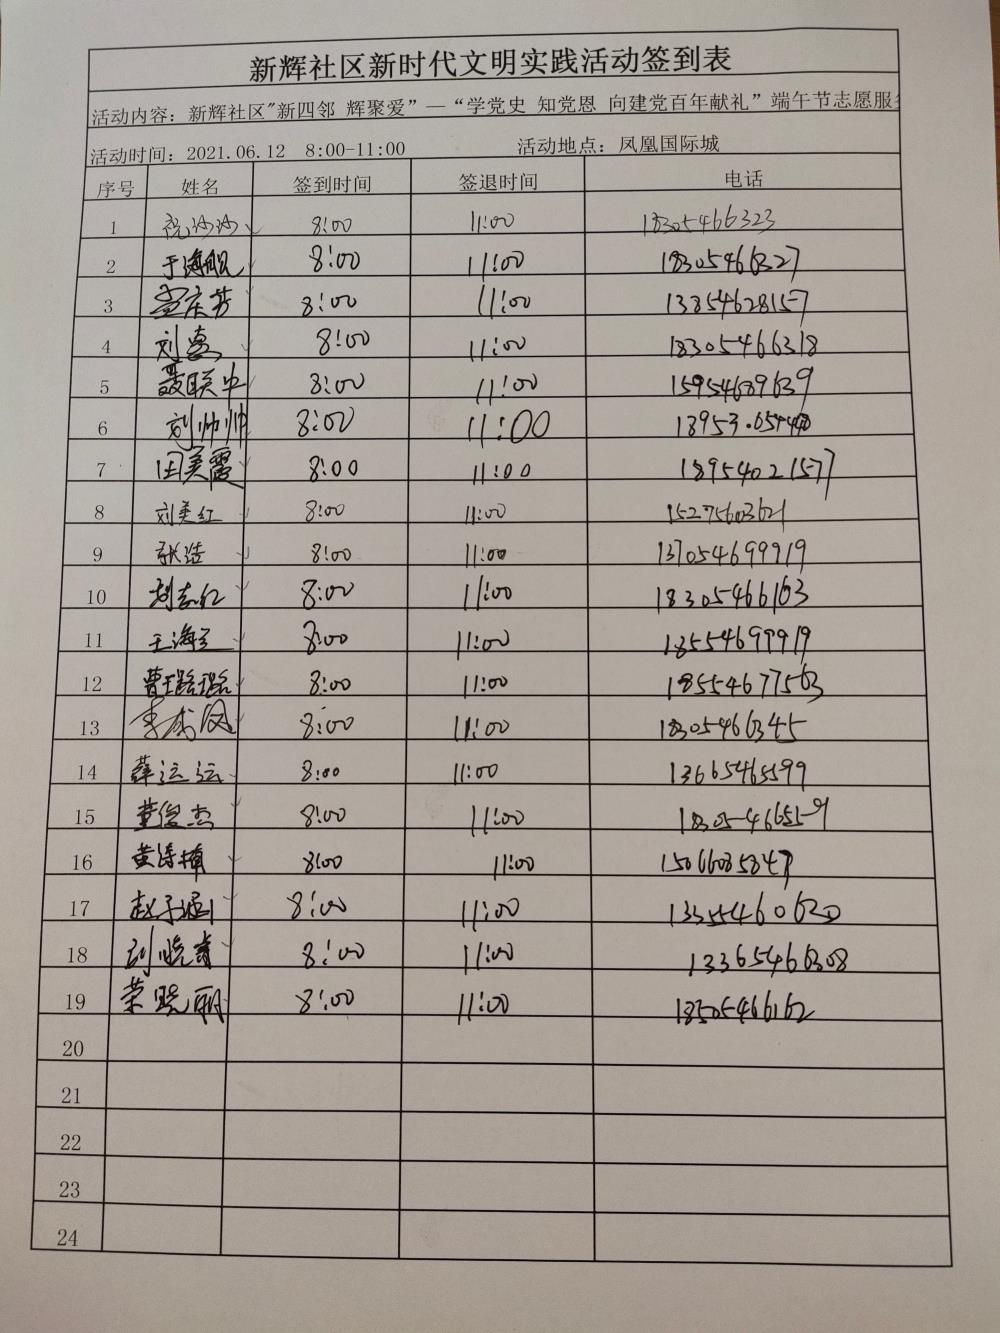 新辉社区新时代文明实践活动签到表
活动内容：新辉社区"新四邻 辉聚爱”—“学党史 知党恩 向建党百年献礼”端午节志愿服
活动时间：2021.06.12 8:00-11:00 活动地点：凤凰国际城
序号 姓名 签到时间 签退时间 电话
1 祝沙沙 8:00 11:00 18305466323
2 于海舰 8:00 11:00 18305466327
3 孟庆芳 8:00 11:00 13854628157
4 刘惠 8:00 11:00 18305466318
5 聂联中 8:00 11:00 15954689639
6 刘帅帅 8:00 11:00
7 田美霞 8:00 11:00 18954021577
8 刘美红 8:00 11:00 15275603621
9 张洁 8:00 11:00 137054699919
10 刘志红 8:00 11:00 18305466163
11 王海 8:00 11:00 18554699919
12 曹璐璐 8:00 11:00 18554677563
13 李成凤 8:00 11:00 18305466345
14 薛运运 8:00 11:00 13665465599
15 董俊杰 8:00 11:00
16 黄 8:00 11:00
17 赵子涵 8:00 11:00 13355460620
18 刘晓 8:00 11:00 13365466308
19 荣晓丽 8:00 11:00 18505466162
20
21
22
23
24